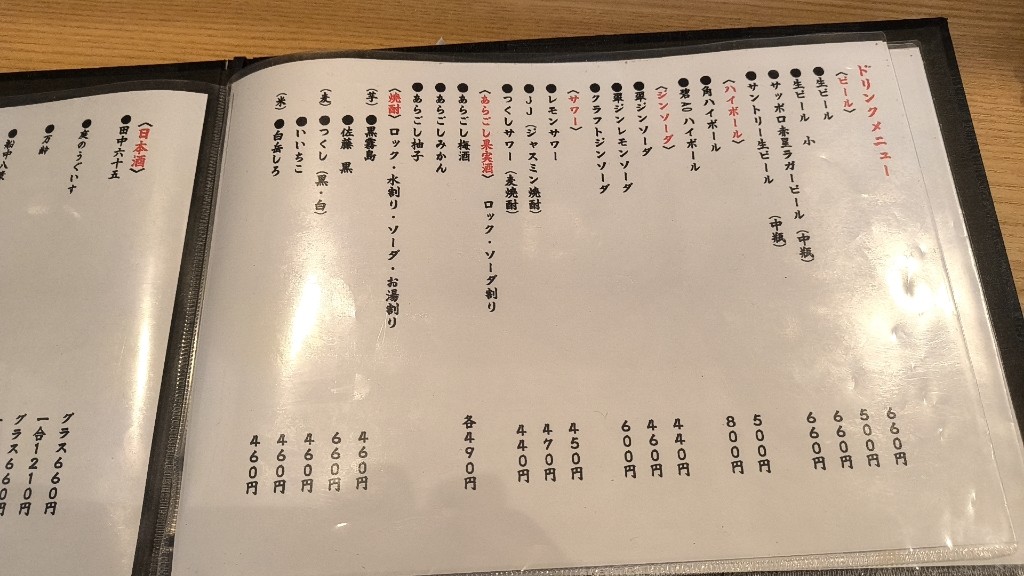 ドリンクメニュー
〈ビール〉
●生ビール 660円
●生ビール 小 500円
●サッポロ赤星ラガービール (中瓶) 660円
●サントリー生ビール (中瓶) 660円
〈ハイボール〉
●角ハイボール 500円
●碧Aoハイボール 800円
〈ジンソーダ〉
●翠ジンソーダ 440円
●翠ジンレモンソーダ 460円
●クラフトジンソーダ 600円
〈サワー〉
●レモンサワー 450円
●JJ(ジャスミン焼酎) 470円
●つくしサワー(麦焼酎) 440円
〈あらごし果実酒〉 ロック・ソーダ割り
●あらごし梅酒 各490円
●あらごしみかん
●あらごし柚子
〈焼酎〉 ロック・水割り・ソーダ・お湯割り
(芋) ●黒霧島 460円
●佐藤 黒 660円
(麦) ●つくし(黒・白) 460円
●いいちこ 460円
(米) ●白岳しろ 460円
〈日本酒〉
●田中六十五
●庭のうぐいす
●万齢
●船中八策
グラス660円
一合1210円
グラス660円